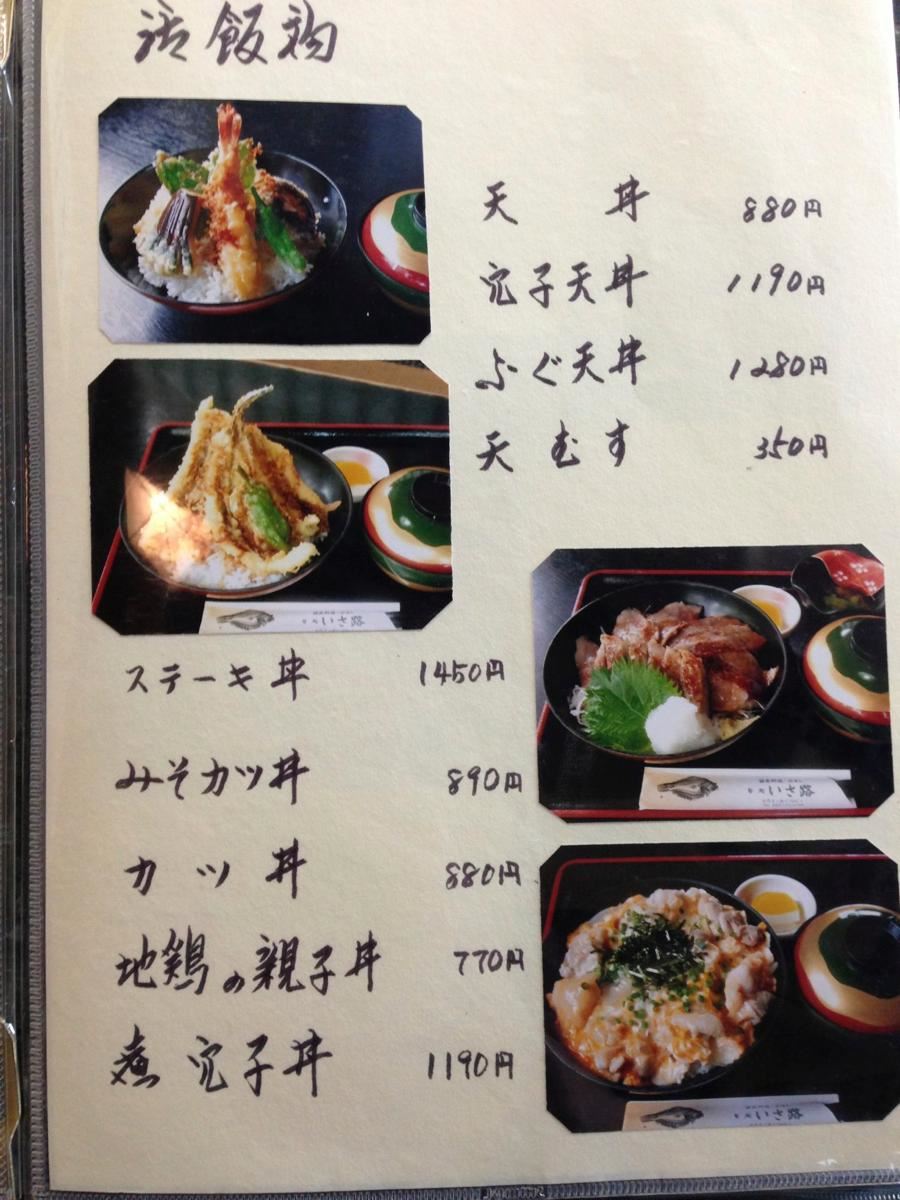 御飯物
天丼 880円
穴子天丼 1190円
ふぐ天丼 1280円
天むす 350円
ステーキ丼 1450円
みそカツ丼 890円
カツ丼 880円
地鶏の親子丼 770円
煮穴子丼 1190円